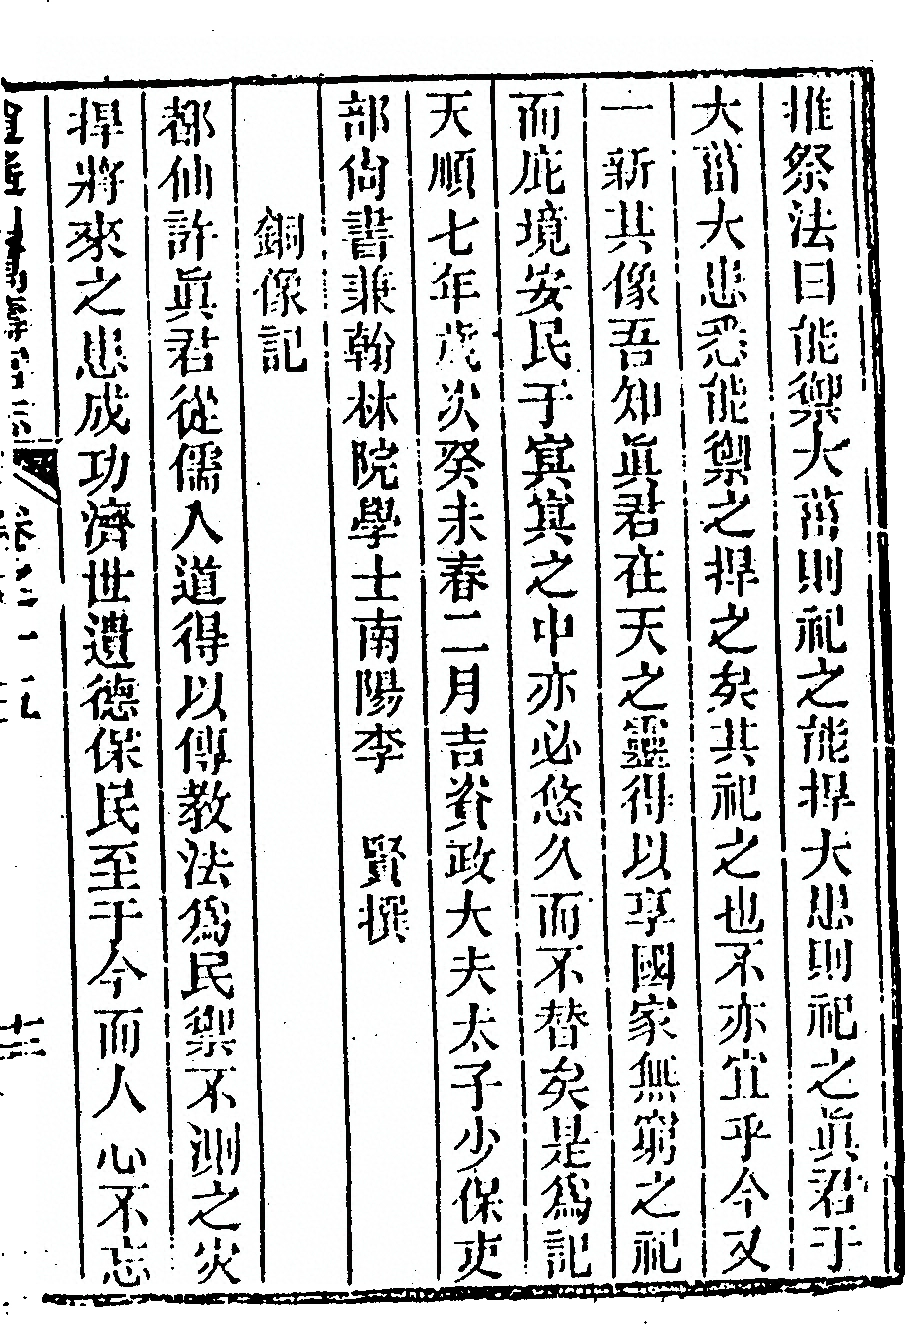 推祭法曰能禦大菑則祀之能捍大患則祀之眞君于
大菑大患悉能禦之捍之矣其祀之也不亦宜乎今又
一新其像吾知眞君在天之靈得以享國家無窮之祀
而庇境安民于寞寞之中亦必悠久而不替矣是爲記
天順七年歲次癸未春二月吉資政大夫太子少保吏
部尙書兼翰林院學士南陽李　賢撰
銅像記
都仙許眞君從儒入道得以傳教法爲民禦不測之灾
捍將來之患成功濟世遺德保民至于今而人心不忘
萬壽宮　卷之十五　十三